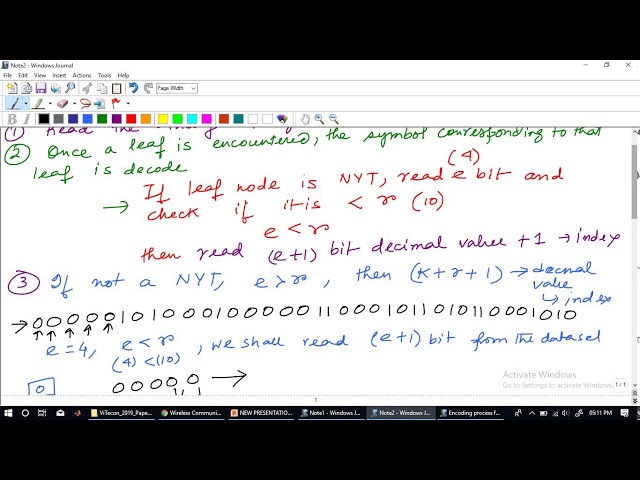 Note2 - Windows Journal
File Edit View Insert Actions Tools Help
Page Width
① Read the
② Once a leaf is encountered, the symbol corresponding to that
leaf is decode
(4)
→ If leaf node is NYT, read e bit and
check if it is < r (10)
e < r
then read (e+1) bit decimal value + 1 → index
③ If not a NYT, e > r, then (k + r + 1) → decimal
value
↳ index
→ 0 0 0 0 0 1 0 1 0 0 0 1 0 0 0 0 0 11 0 0 0 1 0 11 0 1 0 11 0 0 0 1 0 1 0
↑ ↑ ↑ ↑ ↑
e = 4, e < r, we shall read (e+1) bit from the dataset
(4) < (10)
0 0 0 0 0 0 →
Activate Windows
Go to Settings to activate Windows.
1 / 1
1
ViTecon_2019_Pape...
Wireless Communi...
NEW PRESENTATIO...
Note1 - Windows J...
Note2 - Windows J...
Encoding process f...
05:11 PM